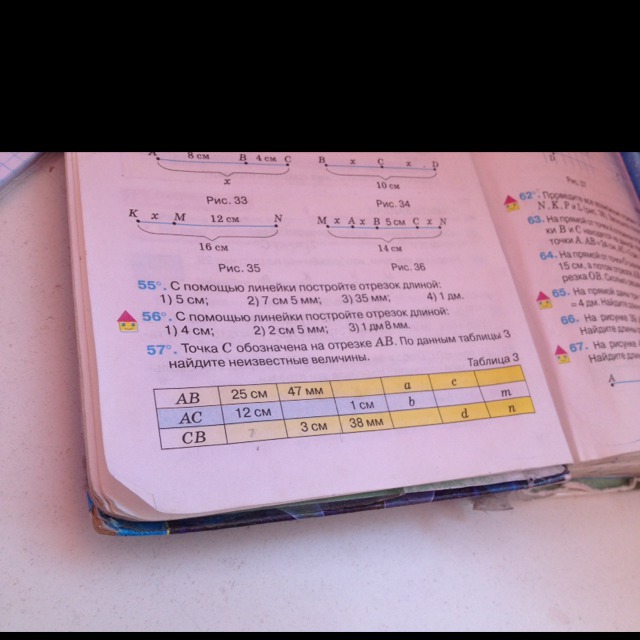 A 8 см B 4 см C
x
Рис. 33
B x C x D
10 см
Рис. 34
K x M 12 см N
16 см
Рис. 35
M x A x B 5 см C x N
14 см
Рис. 36
55°. С помощью линейки постройте отрезок длиной:
1) 5 см; 2) 7 см 5 мм; 3) 35 мм; 4) 1 дм.
56°. С помощью линейки постройте отрезок длиной:
1) 4 см; 2) 2 см 5 мм; 3) 1 дм 8 мм.
57°. Точка C обозначена на отрезке AB. По данным таблицы 3
найдите неизвестные величины.
Таблица 3
AB 25 см 47 мм a c
AC 12 см 1 см b m
CB ? 3 см 38 мм d n
Рис. 37
62°. Проведите все
N, K, P и L
63. На прямой
ки B и C
точки A. AB
64. На прямой
15 см, а потом
резка OB.
65. На прямой
= 4 дм. Найдите
66. На рисунке
Найдите
67. На рисунке
Найдите
A